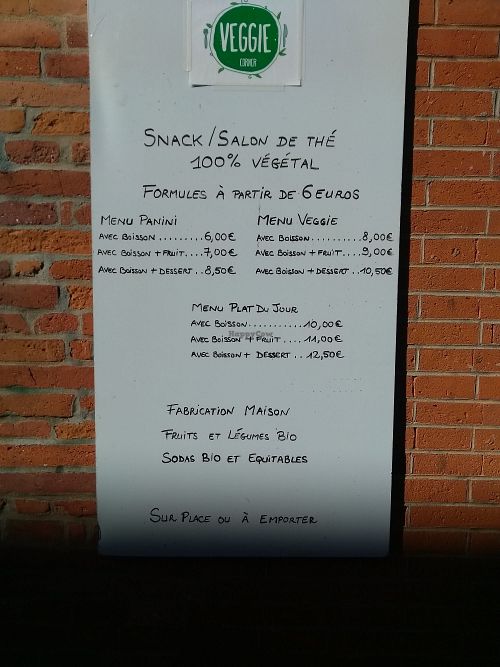 VEGGIE
CORNER
SNACK/SALON DE THÉ
100% VÉGÉTAL
FORMULES À PARTIR DE 6 EUROS
MENU PANINI
AVEC BOISSON..........6,00€
AVEC BOISSON + FRUIT....7,00€
AVEC BOISSON + DESSERT..8,50€
MENU VEGGIE
AVEC BOISSON...........8,00€
AVEC BOISSON + FRUIT....9,00€
AVEC BOISSON + DESSERT..10,50€
MENU PLAT DU JOUR
AVEC BOISSON............10,00€
AVEC BOISSON + FRUIT....11,00€
AVEC BOISSON + DESSERT..12,50€
HappyCow
FABRICATION MAISON
FRUITS ET LÉGUMES BIO
SODAS BIO ET EQUITABLES
SUR PLACE OU À EMPORTER